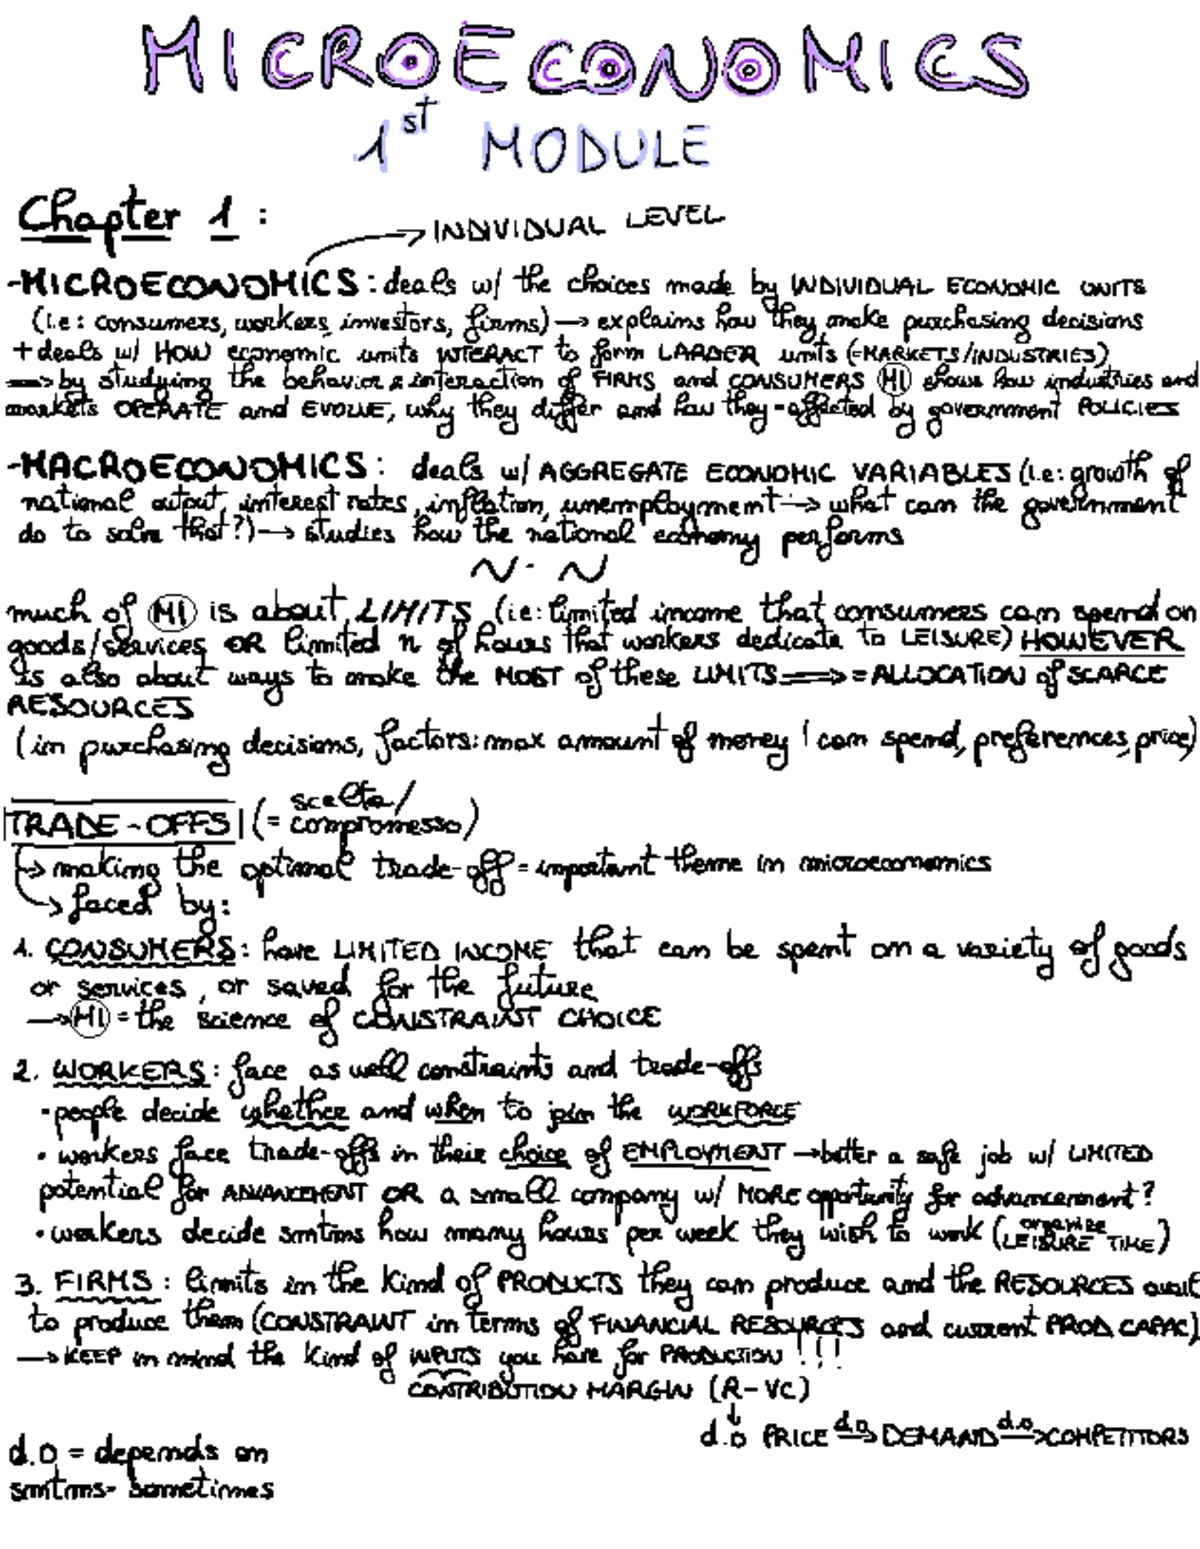 MICROECONOMICS
1st MODULE
Chapter 1 :
→ INDIVIDUAL LEVEL
-MICROECONOMICS : deals w/ the choices made by INDIVIDUAL ECONOMIC UNITS
(i.e: consumers, workers, investors, firms) → explains how they make purchasing decisions
+ deals w/ HOW economic units INTERACT to form LARGER units (=MARKETS/INDUSTRIES)
⇒ by studying the behavior & interaction of FIRMS and CONSUMERS MI shows how industries and
markets OPERATE and EVOLVE, why they differ and how they-affected by government POLICIES
-MACROECONOMICS : deals w/ AGGREGATE ECONOMIC VARIABLES (i.e: growth of
national output, interest rates, inflation, unemployment → what can the government
do to solve that?) → studies how the national economy performs
~ · ~
much of MI is about LIMITS (ie: limited income that consumers can spend on
goods/services OR limited n of hours that workers dedicate to LEISURE) HOWEVER
is also about ways to make the MOST of these LIMITS ⇒ = ALLOCATION of SCARCE
RESOURCES
(in purchasing decisions, factors: max amount of money I can spend, preferences, price)
TRADE-OFFS | (= scelta/
compromesso)
↳ making the optimal trade-off = important theme in microeconomics
↳ faced by:
1. CONSUMERS : have LIMITED INCOME that can be spent on a variety of goods
or services, or saved for the future
→ MI = the science of CONSTRAINT CHOICE
2. WORKERS : face as well constraints and trade-offs
• people decide whether and when to join the WORKFORCE
• workers face trade-offs in their choice of EMPLOYMENT → better a safe job w/ LIMITED
potential for ADVANCEMENT OR a small company w/ MORE opportunity for advancement?
• workers decide smtms how many hours per week they wish to work (organize
LEISURE TIME)
3. FIRMS : limits in the kind of PRODUCTS they can produce and the RESOURCES avail
to produce them (CONSTRAINT in terms of FINANCIAL RESOURCES and current PROD. CAPAC)
→ KEEP in mind the kind of INPUTS you have for PRODUCTION !!!
CONTRIBUTION MARGIN (R-VC)
↓
d.o PRICE d.o→ DEMAND d.o→ COMPETITORS
d.o = depends on
smtms- sometimes